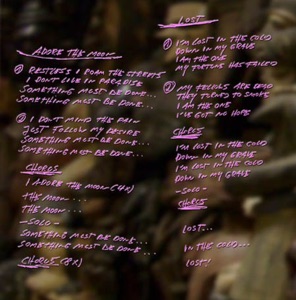 ADORE THE MOON
① RESTLESS I ROAM THE STREETS
I DON'T LIVE IN PARADISE
SOMETHING MUST BE DONE...
SOMETHING MUST BE DONE...
② I DON'T MIND THE PAIN
JUST FOLLOW MY DESIRE
SOMETHING MUST BE DONE...
SOMETHING MUST BE DONE...
CHORUS
I ADORE THE MOON (4X)
THE MOON...
THE MOON...
-SOLO-
SOMETHING MUST BE DONE...
SOMETHING MUST BE DONE...
CHORUS (8X)
LOST
① I'M LOST IN THE COLD
DOWN IN MY GRAVE
I AM THE ONE
MY TORTURE HAS FAILED
② MY FELLOWS ARE DEAD
THEY TURNED TO SMOKE
I AM THE ONE
I'VE GOT NO HOPE
CHORUS
I'M LOST IN THE COLD
DOWN IN MY GRAVE
I'M LOST IN THE COLD
DOWN IN MY GRAVE
-SOLO-
CHORUS
LOST...
IN THE COLD...
LOST!